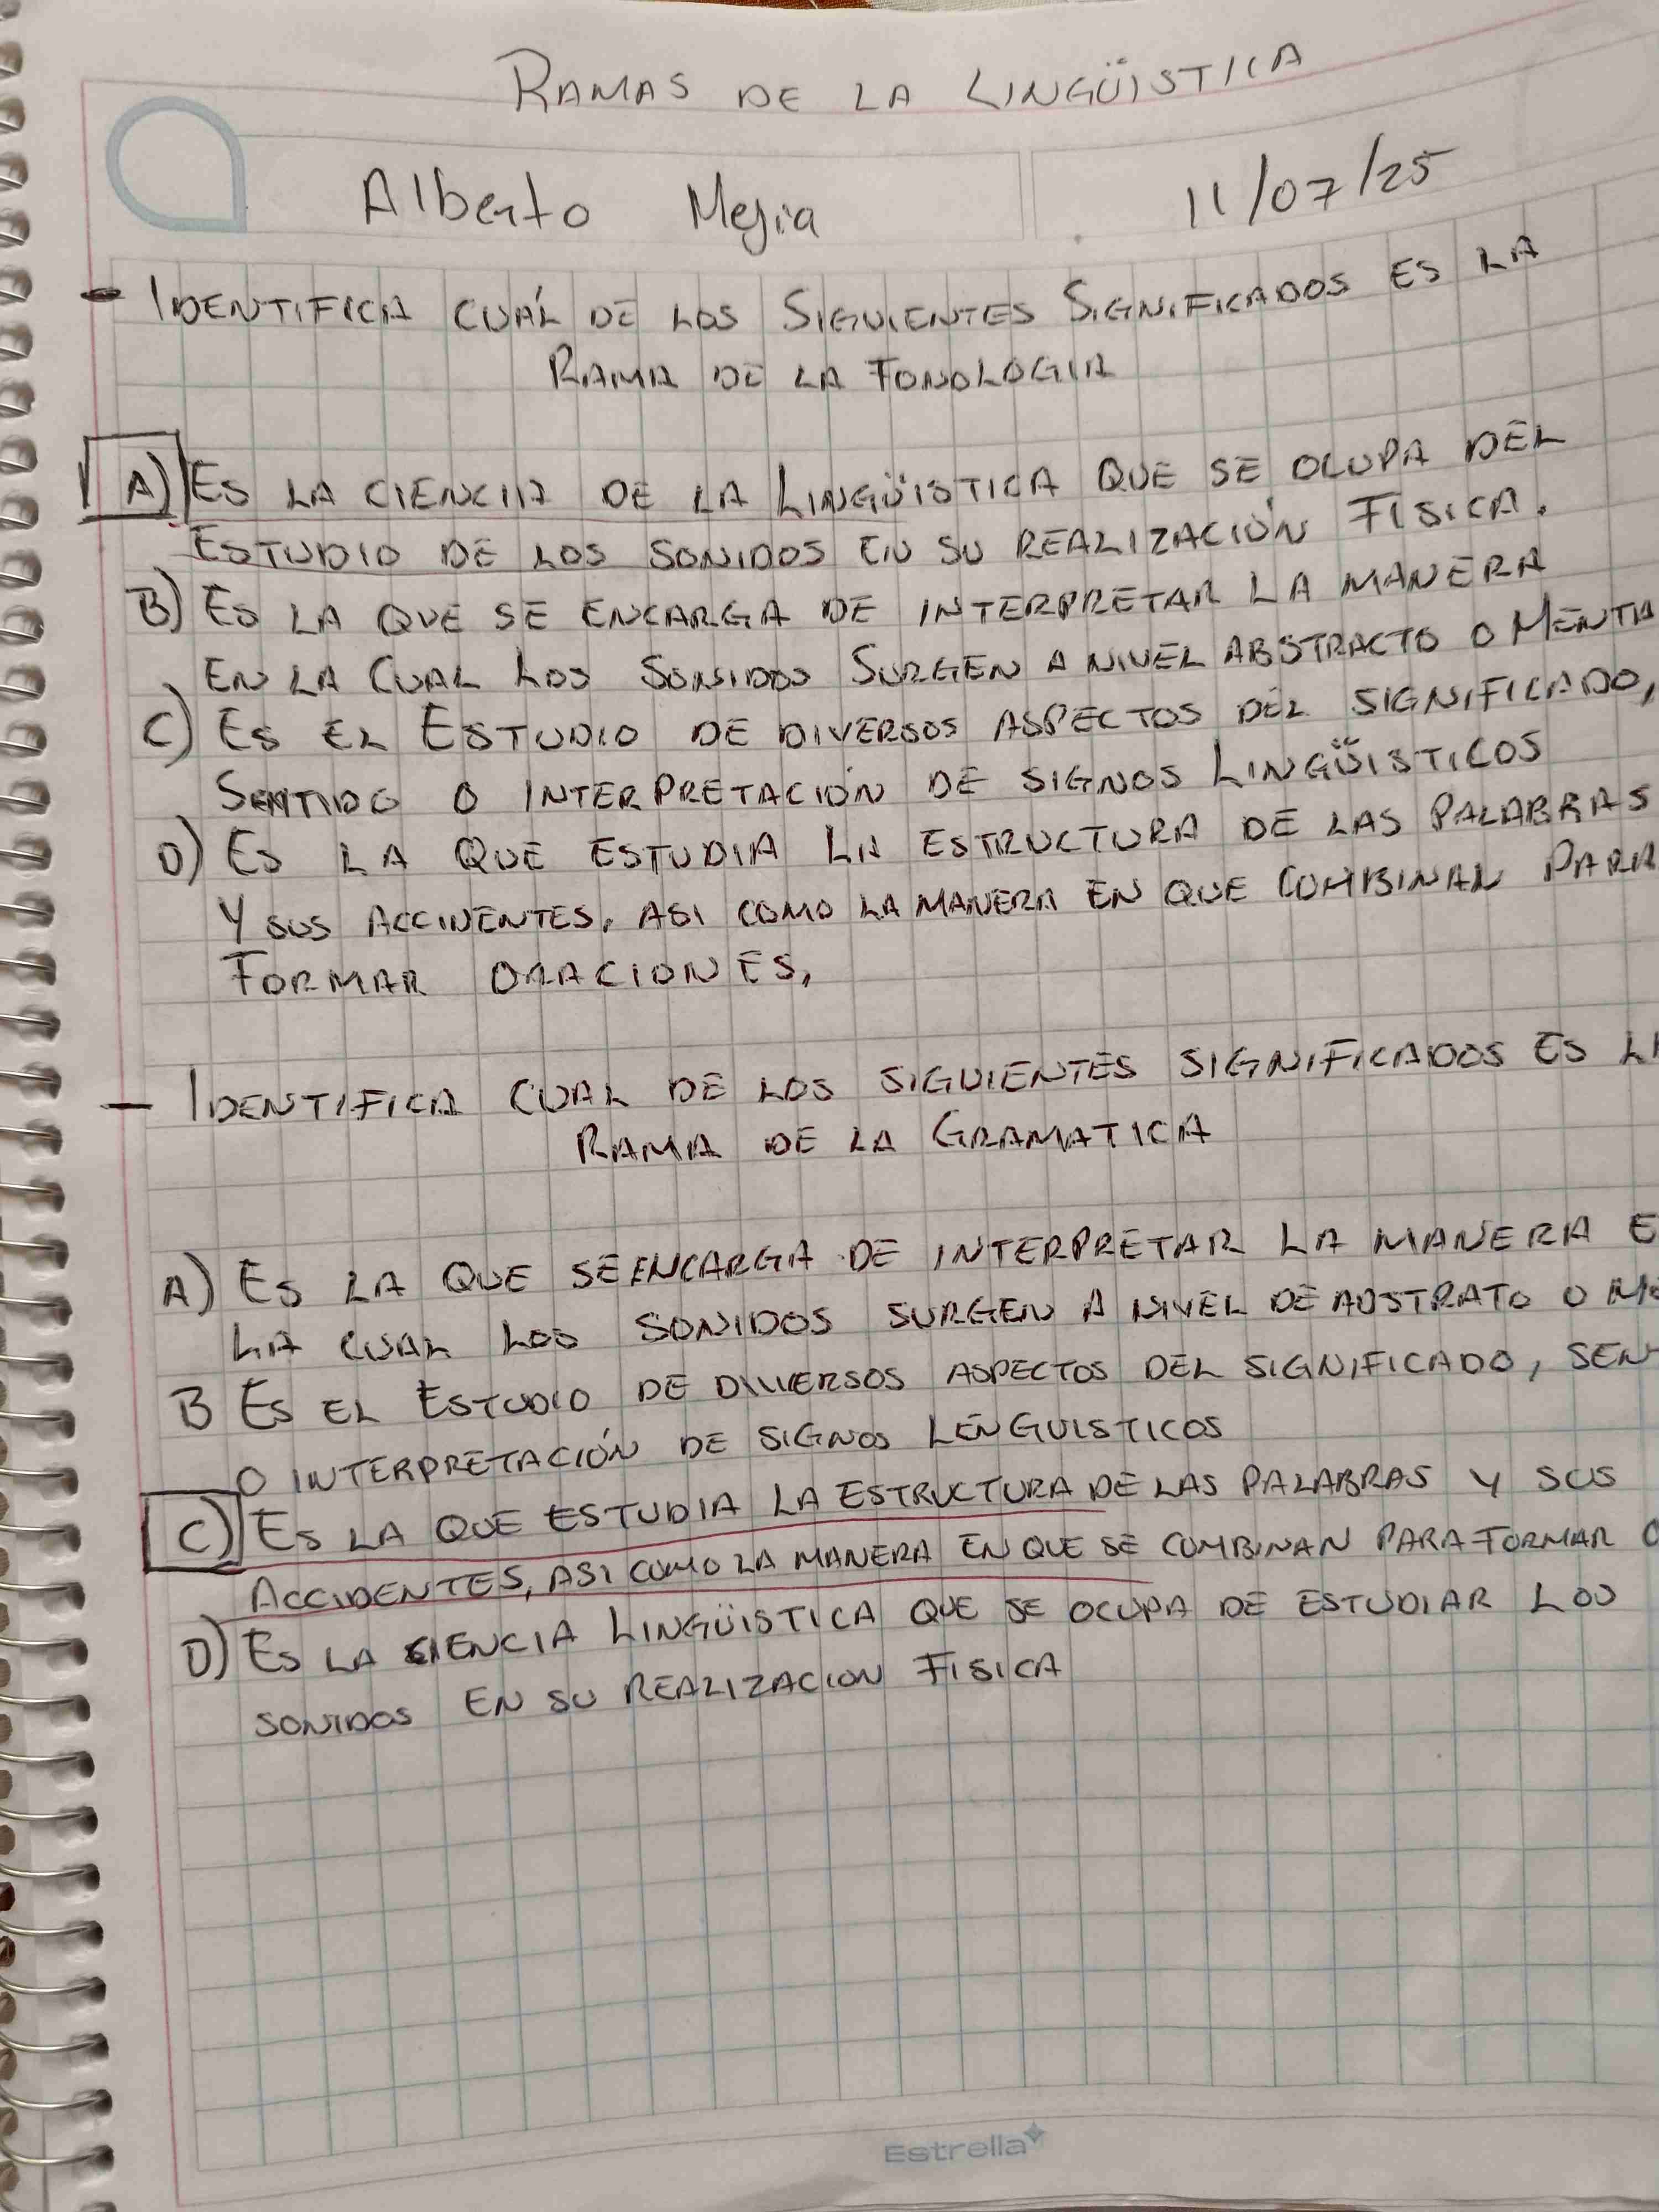 RAMAS DE LA LINGÜISTICA
Alberto Mejia 11/07/25
- IDENTIFICA CUÁL DE LOS SIGUIENTES SIGNIFICADOS ES LA
RAMA DE LA FONOLOGIA
A) ES LA CIENCIA DE LA LINGÜISTICA QUE SE OCUPA DEL
ESTUDIO DE LOS SONIDOS EN SU REALIZACIÓN FISICA.
B) ES LA QUE SE ENCARGA DE INTERPRETAR LA MANERA
EN LA CUAL LOS SONIDOS SURGEN A NIVEL ABSTRACTO O MENTA
C) ES EL ESTUDIO DE DIVERSOS ASPECTOS DEL SIGNIFICADO,
SENTIDO O INTERPRETACIÓN DE SIGNOS LINGÜISTICOS
D) ES LA QUE ESTUDIA LA ESTRUCTURA DE LAS PALABRAS
Y SUS ACCIDENTES, ASI COMO LA MANERA EN QUE COMBINAN PARA
FORMAR ORACIONES,
- IDENTIFICA CUAL DE LOS SIGUIENTES SIGNIFICADOS ES LA
RAMA DE LA GRAMATICA
A) ES LA QUE SE ENCARGA DE INTERPRETAR LA MANERA E
LA CUAL LOS SONIDOS SURGEN A NIVEL DE ABSTRATO O ME
B ES EL ESTUDIO DE DIVERSOS ASPECTOS DEL SIGNIFICADO, SEN
O INTERPRETACIÓN DE SIGNOS LENGUISTICOS
C) ES LA QUE ESTUDIA LA ESTRUCTURA DE LAS PALABRAS Y SUS
ACCIDENTES, ASI COMO LA MANERA EN QUE SE COMBINAN PARA FORMAR O
D) ES LA CIENCIA LINGÜISTICA QUE SE OCUPA DE ESTUDIAR LOS
SONIDOS EN SU REALIZACION FISICA
Estrella